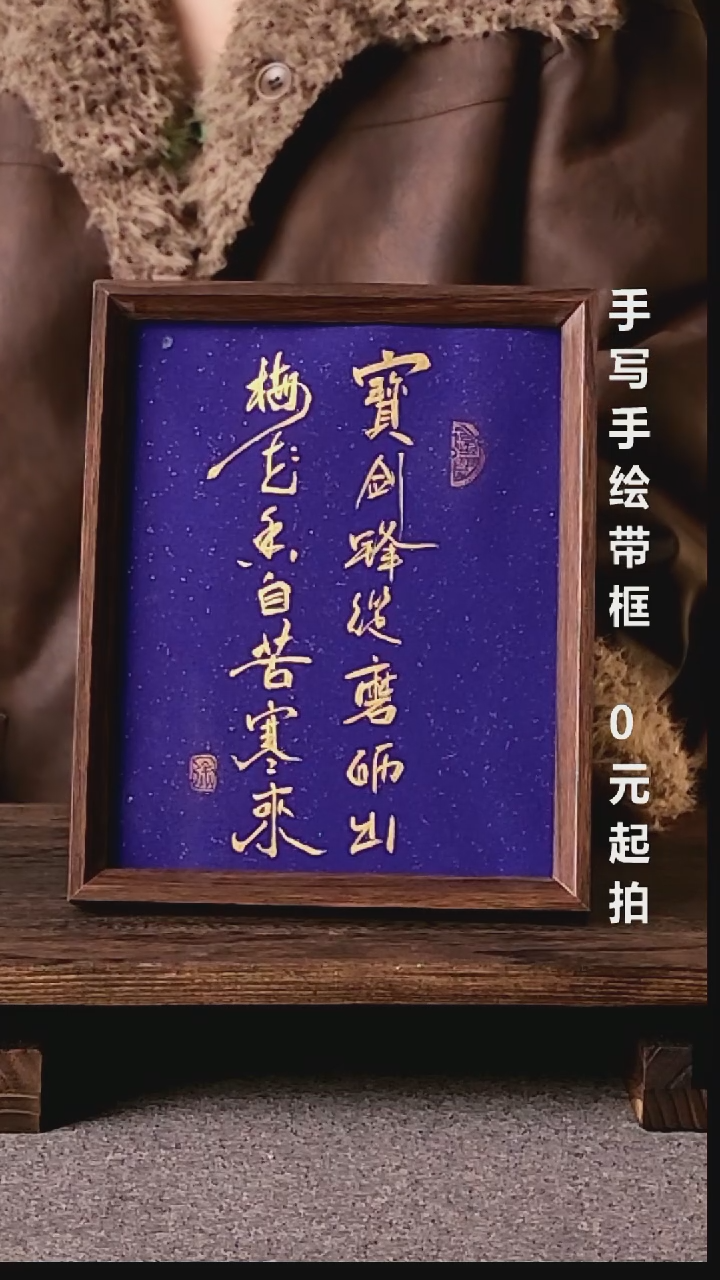 寶劍鋒從磨砺出
梅花香自苦寒來
手写手绘带框 0元起拍